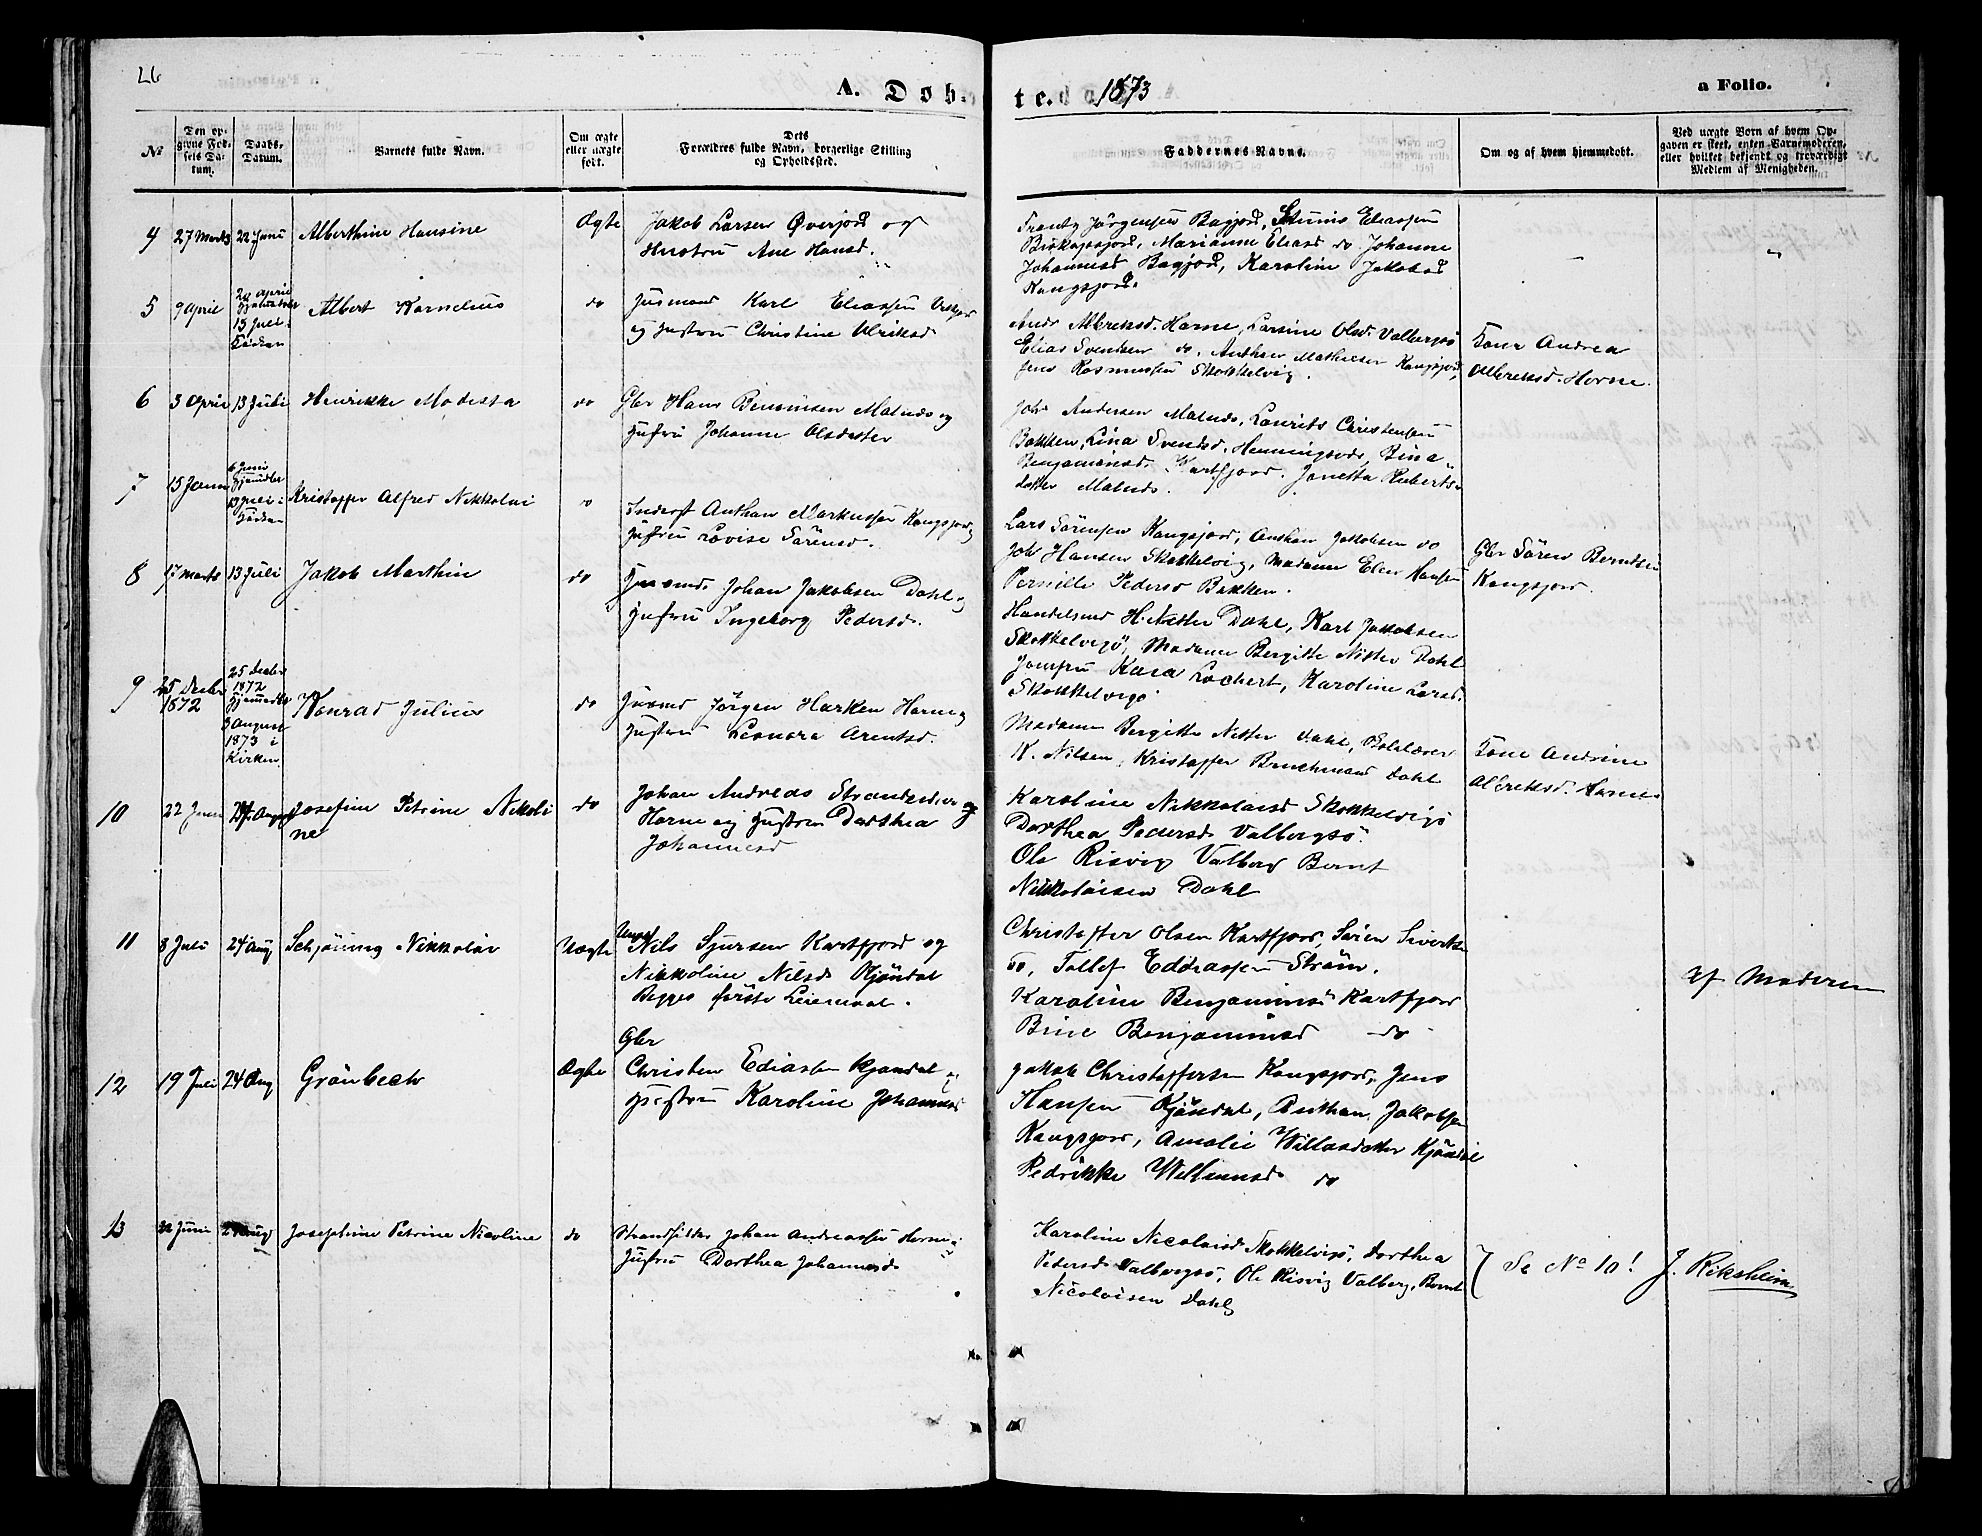 26
A. Døbte. 1873 a Folio.
№
Den opgivne Fødsels Datum.
Daabs-Datum.
Barnets fulde Navn.
Om ægte eller uægte født.
Dets Forældres fulde Navn, borgerlige Stilling og Opholdssted.
Faddernes Navne.
Om og af hvem hjemmedøbt.
Ved uægte Børn af hvem Opgaven er skeet, enten Barnemoderen, eller hvilket bekjendt og troværdigt Medlem af Menigheden.
4 27 Marts 22 Juni Alberthine Hansine Ægte
Jakob Larsen Øverjord og
Hustru Ane Hansd.
Frantz Jörgensen Bagjord, Eliassen
Biskopsjord, Marianne Eliasd do Johanne
Johannesd Bagjord, Karoline Jakobsd
Kongsjord.
5 9 April 20 April
15 Juli i
Kirken
Albert Kornelius do
Husmand Karl Eliassen
og Hustru Christine Ulriksd
Albreksd. Horne, Larsine Olsd. Valbergsö
Elias Svendsen do. Anthon Mathisen Kongsjord,
Jens Rasmussen Skokkelvig.
Kone Andrea
Albreksd. Horne.
6 3 April 13 Juli Henrikke Modesta do
Gbr Hans Benonisen Malnes og
Hustru Johanne Olsdatter
Joh. Andersen Malnes, Laurits Christensen
Bakken, Lina Svendsd. Hemingsods, Bina
Benjaminsd. Kartfjord. Janetta Ruberts
datter Malnes.
7 15 Janu 6 Juni
Hjemdbt
13 Juli i
Kirken
Kristoffer Alfred Nikkolai do
Inderst Anthon Markussen Kongsjord
Hustru Lovise Sörensd.
Lars Sörensen Kongsjord, Anthon Jakobsen do
Joh Hansen Skokkelvig, Madame Elen Hansen
Pernille Pedersd Bakken.
Gbr Sören Berntsen
Kongsjord.
8 17 Marts 13 Juli Jakob Marthin do
Husmd. Johan Jakobsen Dahl og
Hustru Ingeborg Pedersd.
Handelsmd H. Netter Dahl, Karl Jakobsen
Skokkelvigö, Madame Bergitte Nitter Dahl
Jomfru Kaia Lochert, Karoline Larsd.
Skokkelvigö
9 25 Decbr
1872
25 Decbr
1872
Hjemmedbt
3 August
1873 i
Kirken
Konrad Julius do
Husmd Jörgen Harken Horne og
Hustru Leonora Arentsd.
Madame Bergitte Nitter Dahl,
K. Nilsen, Kristoffer Bruchmand Dahl
Kone Andrine
Albreksd. Horne
10 22 Juni 24 August Josefine Petrine Nikoli
ne
do
Johan Andreas Strandsidder
Horne og Hustru Dorthea
Johannesd
Karoline Nikkolaisd Skokkelvigö
Dorthea Pedersd Valbergsö.
Ole Risvig Valberg Bernt
Nikkolaisen Dahl
11 8 Juli 24 Aug, Schjöning Nikkolai Uægte
Ungk
Nils Sjursen Kartfjord og
Nikkoline Nilsd Kjöndal
Begges förste Leiermaal.
Christoffer Olsen Kartfjord, Sören Siverts
do, Tollef Ediassen Ström.
Karoline Benjaminsd Kartfjord
Bine Benjaminsd do
af Moderen
12 19 Juli 24 Aug Grönbech Ægte
Gbr
Christen Ediassen Kjöndal og
Hustru Karoline Johannesd
Jakob Christoffersen Kongsjord, Jens
Hansen Kjöndal, Anthon Jakobsen
Kongsjord, Amalie Willasdatter Kjöndal
Pedrikke Willumsd do
13 22 Juni 24 Aug Josephine Petrine Nicoline do
Strandsidder Johan Andreassen Horne
Hustru Dorthea Johannesd
Karoline Nicolaisd Skokkelvigö, Dorthea
Pedersd Valbergsö, Ole Risvig Valberg, Bernt
Nicolaisen Dahl
Se No 10! J. Riksheim